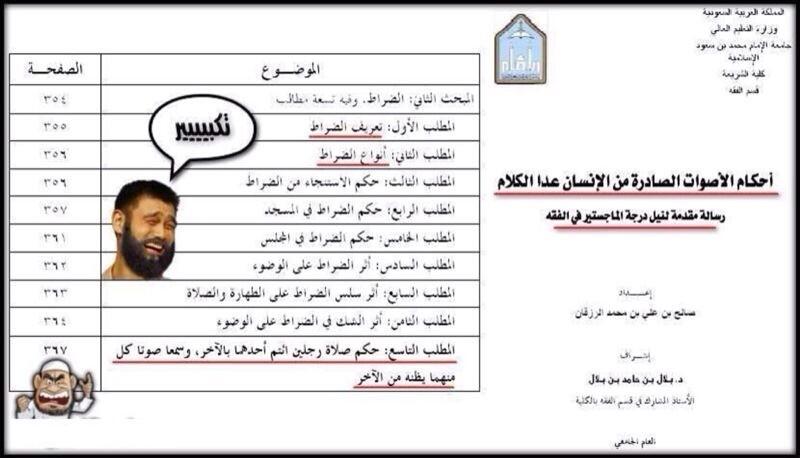 المملكة العربية السعودية
وزارة التعليم العالي
جامعة الإمام محمد بن سعود
الإسلامية
كلية الشريعة
قسم الفقه
أحكام الأصوات الصادرة من الإنسان عدا الكلام
رسالة مقدمة لنيل درجة الماجستير في الفقه
إعـــداد
صالح بن علي بن محمد الزرقان
إشراف
د. بلال بن حامد بن بلال
الأستاذ المشارك في قسم الفقه بالكلية
العام الجامعي
الموضـــوع الصفحـــة
المبحث الثاني: الضراط، وفيه تسعة مطالب ٣٥٤
المطلب الأول: تعريف الضراط ٣٥٥
المطلب الثاني: أنواع الضراط ٣٥٦
المطلب الثالث: حكم الاستنجاء من الضراط ٣٥٦
المطلب الرابع: حكم الضراط في المسجد ٣٥٧
المطلب الخامس: حكم الضراط في المجلس ٣٦١
المطلب السادس: أثر الضراط على الوضوء ٣٦٢
المطلب السابع: أثر سلس الضراط على الطهارة والصلاة ٣٦٣
المطلب الثامن: أثر الشك في الضراط على الوضوء ٣٦٤
المطلب التاسع: حكم صلاة رجلين ائتم أحدهما بالآخر، وسمعا صوتا كل ٣٦٧
منهما يظنه من الآخر
تكبيييير